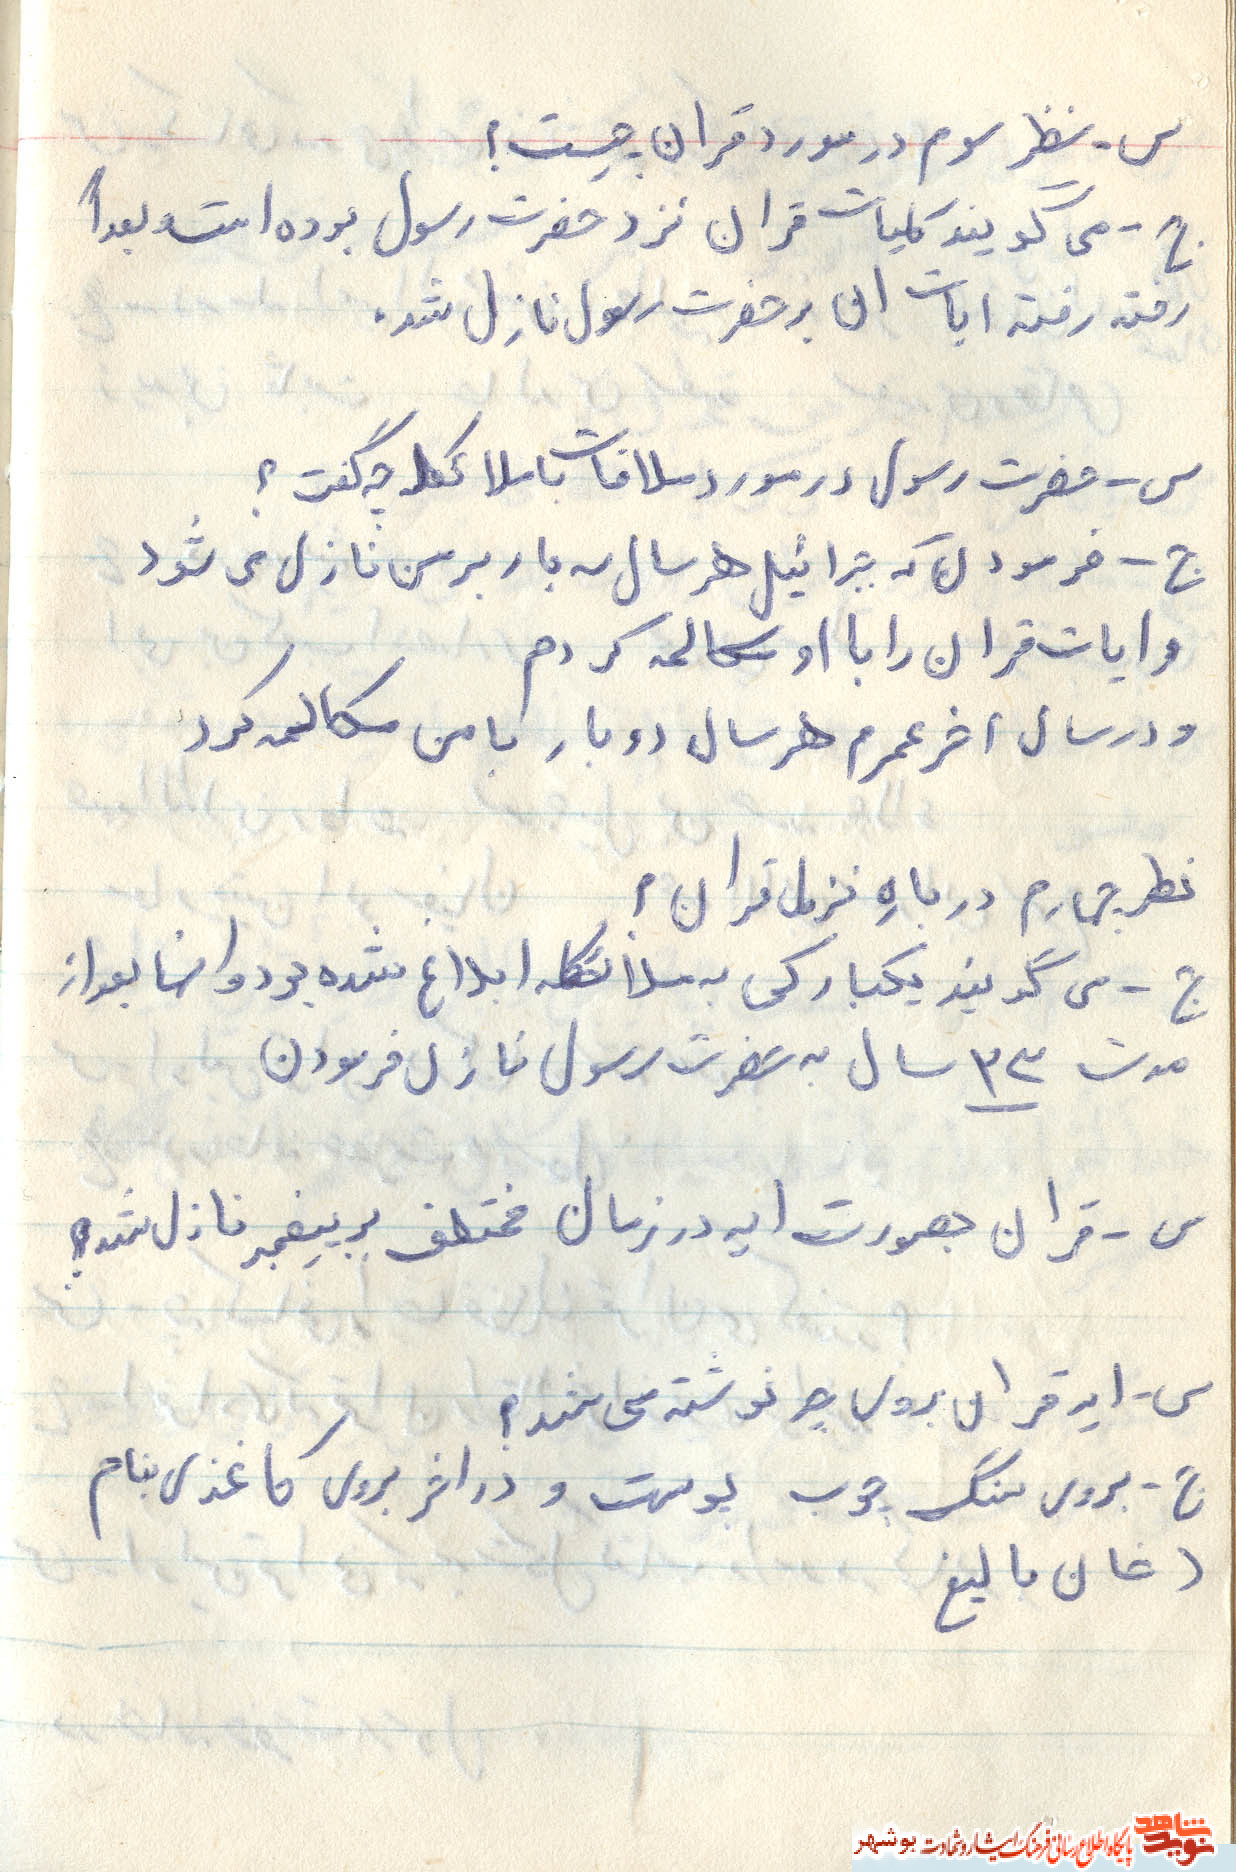 س - نظر سوم در مورد قران چیست؟
ج - می گویند کلیات قران نزد حضرت رسول بوده است و بعداً
رفته رفته ایات ان بر حضرت رسول نازل شد.
س - حضرت رسول در مورد ملاقات با ملائکه چه گفت؟
ج - فرمودن که جبرائیل هر سال سه بار بر من نازل می شود
و ایات قران را با او مکالمه کردم
و در سال اخر عمرم هر سال دو بار با من مکالمه کرد
نظر چهارم درباره نزول قران؟
ج - می گویند یکبارکی به ملائکه ابلاغ شده بود و انها بعد از
مدت ۲۳ سال به حضرت رسول نازل فرمودن
س - قران بصورت ایه در زمان مختلف بر پیغمبر نازل شد؟
س - ایه قران بروی چه نوشته می شد؟
ج - بروی سنگ چوب پوست و در اخر بروی کاغذی بنام
(خان بالیغ
نوید شاهد
پایگاه اطلاع رسانی فرهنگ ایثار و شهادت بوشهر